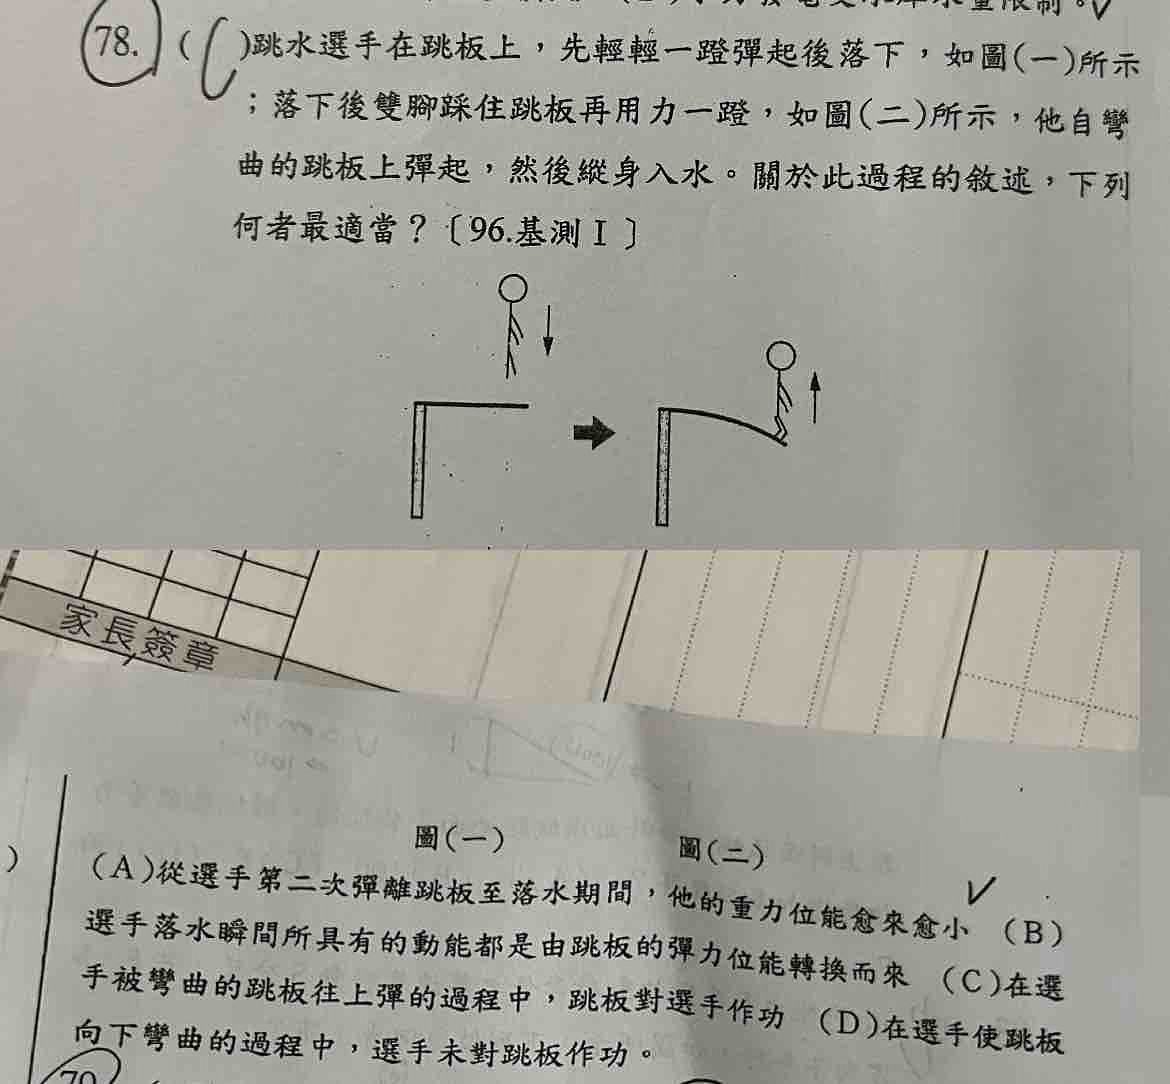 78. ( )跳水選手在跳板上，先輕輕一蹬彈起後落下，如圖(一)所示
；落下後雙腳踩住跳板再用力一蹬，如圖(二)所示，他自彎
曲的跳板上彈起，然後縱身入水。關於此過程的敘述，下列
何者最適當？〔96.基測Ⅰ〕
家長簽章
圖(一) 圖(二)
(A)從選手第二次彈離跳板至落水期間，他的重力位能愈來愈小 (B)
選手落水瞬間所具有的動能都是由跳板的彈力位能轉換而來 (C)在選
手被彎曲的跳板往上彈的過程中，跳板對選手作功 (D)在選手使跳板
向下彎曲的過程中，選手未對跳板作功。